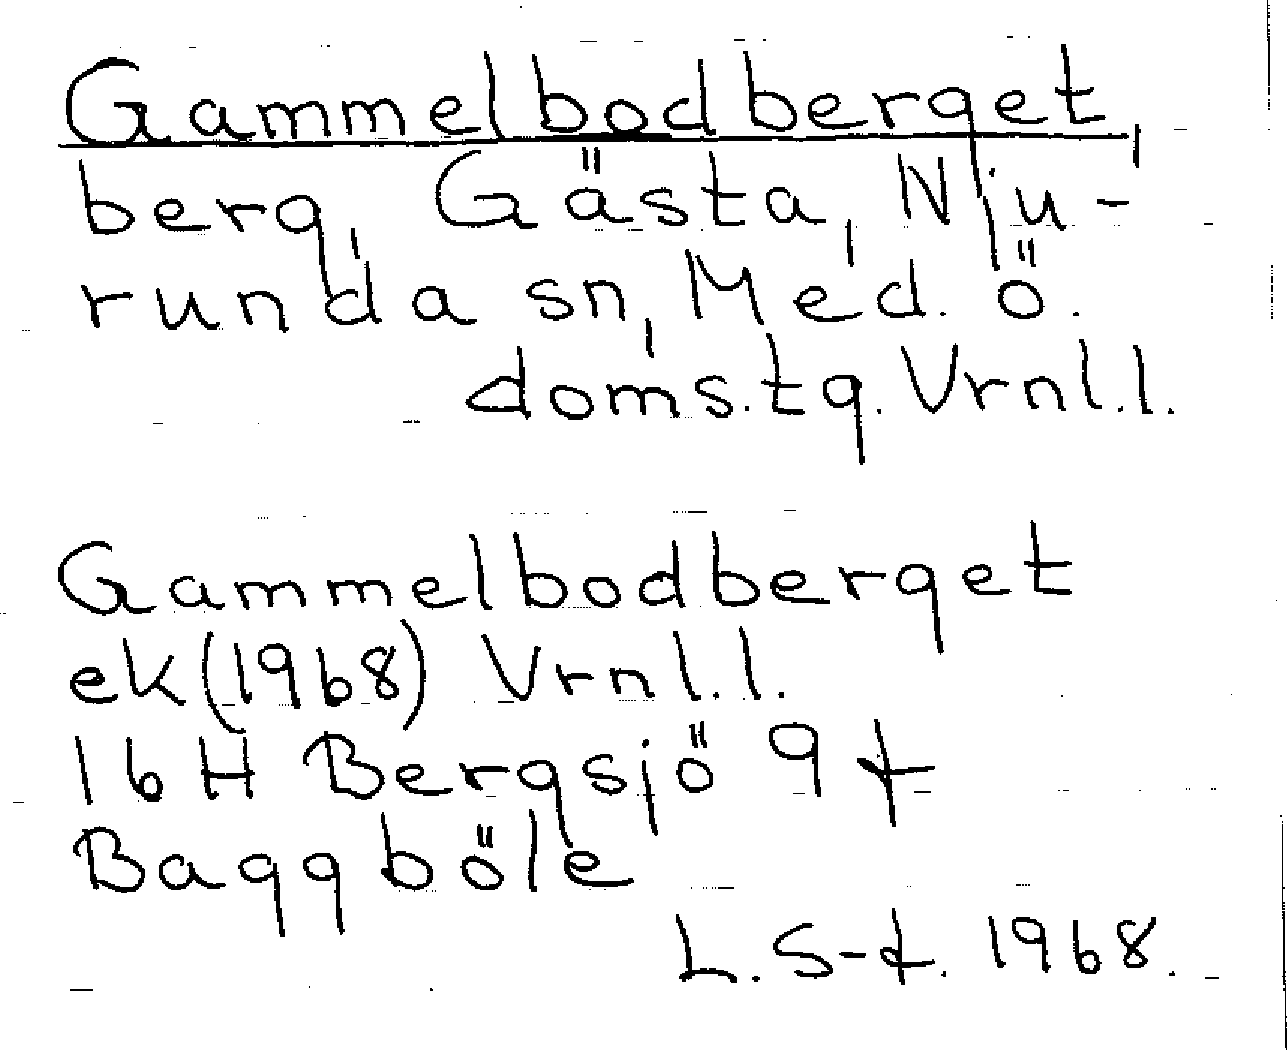 Gammelbodberget,
berg, Gästa, Nju-
runda sn, Med. ö.
doms.tg. Vrnl.l.
Gammelbodberget
ek(1968) Vrnl.l.
16 H Bergsjö 9 f
Baggböle
L. S-t. 1968.